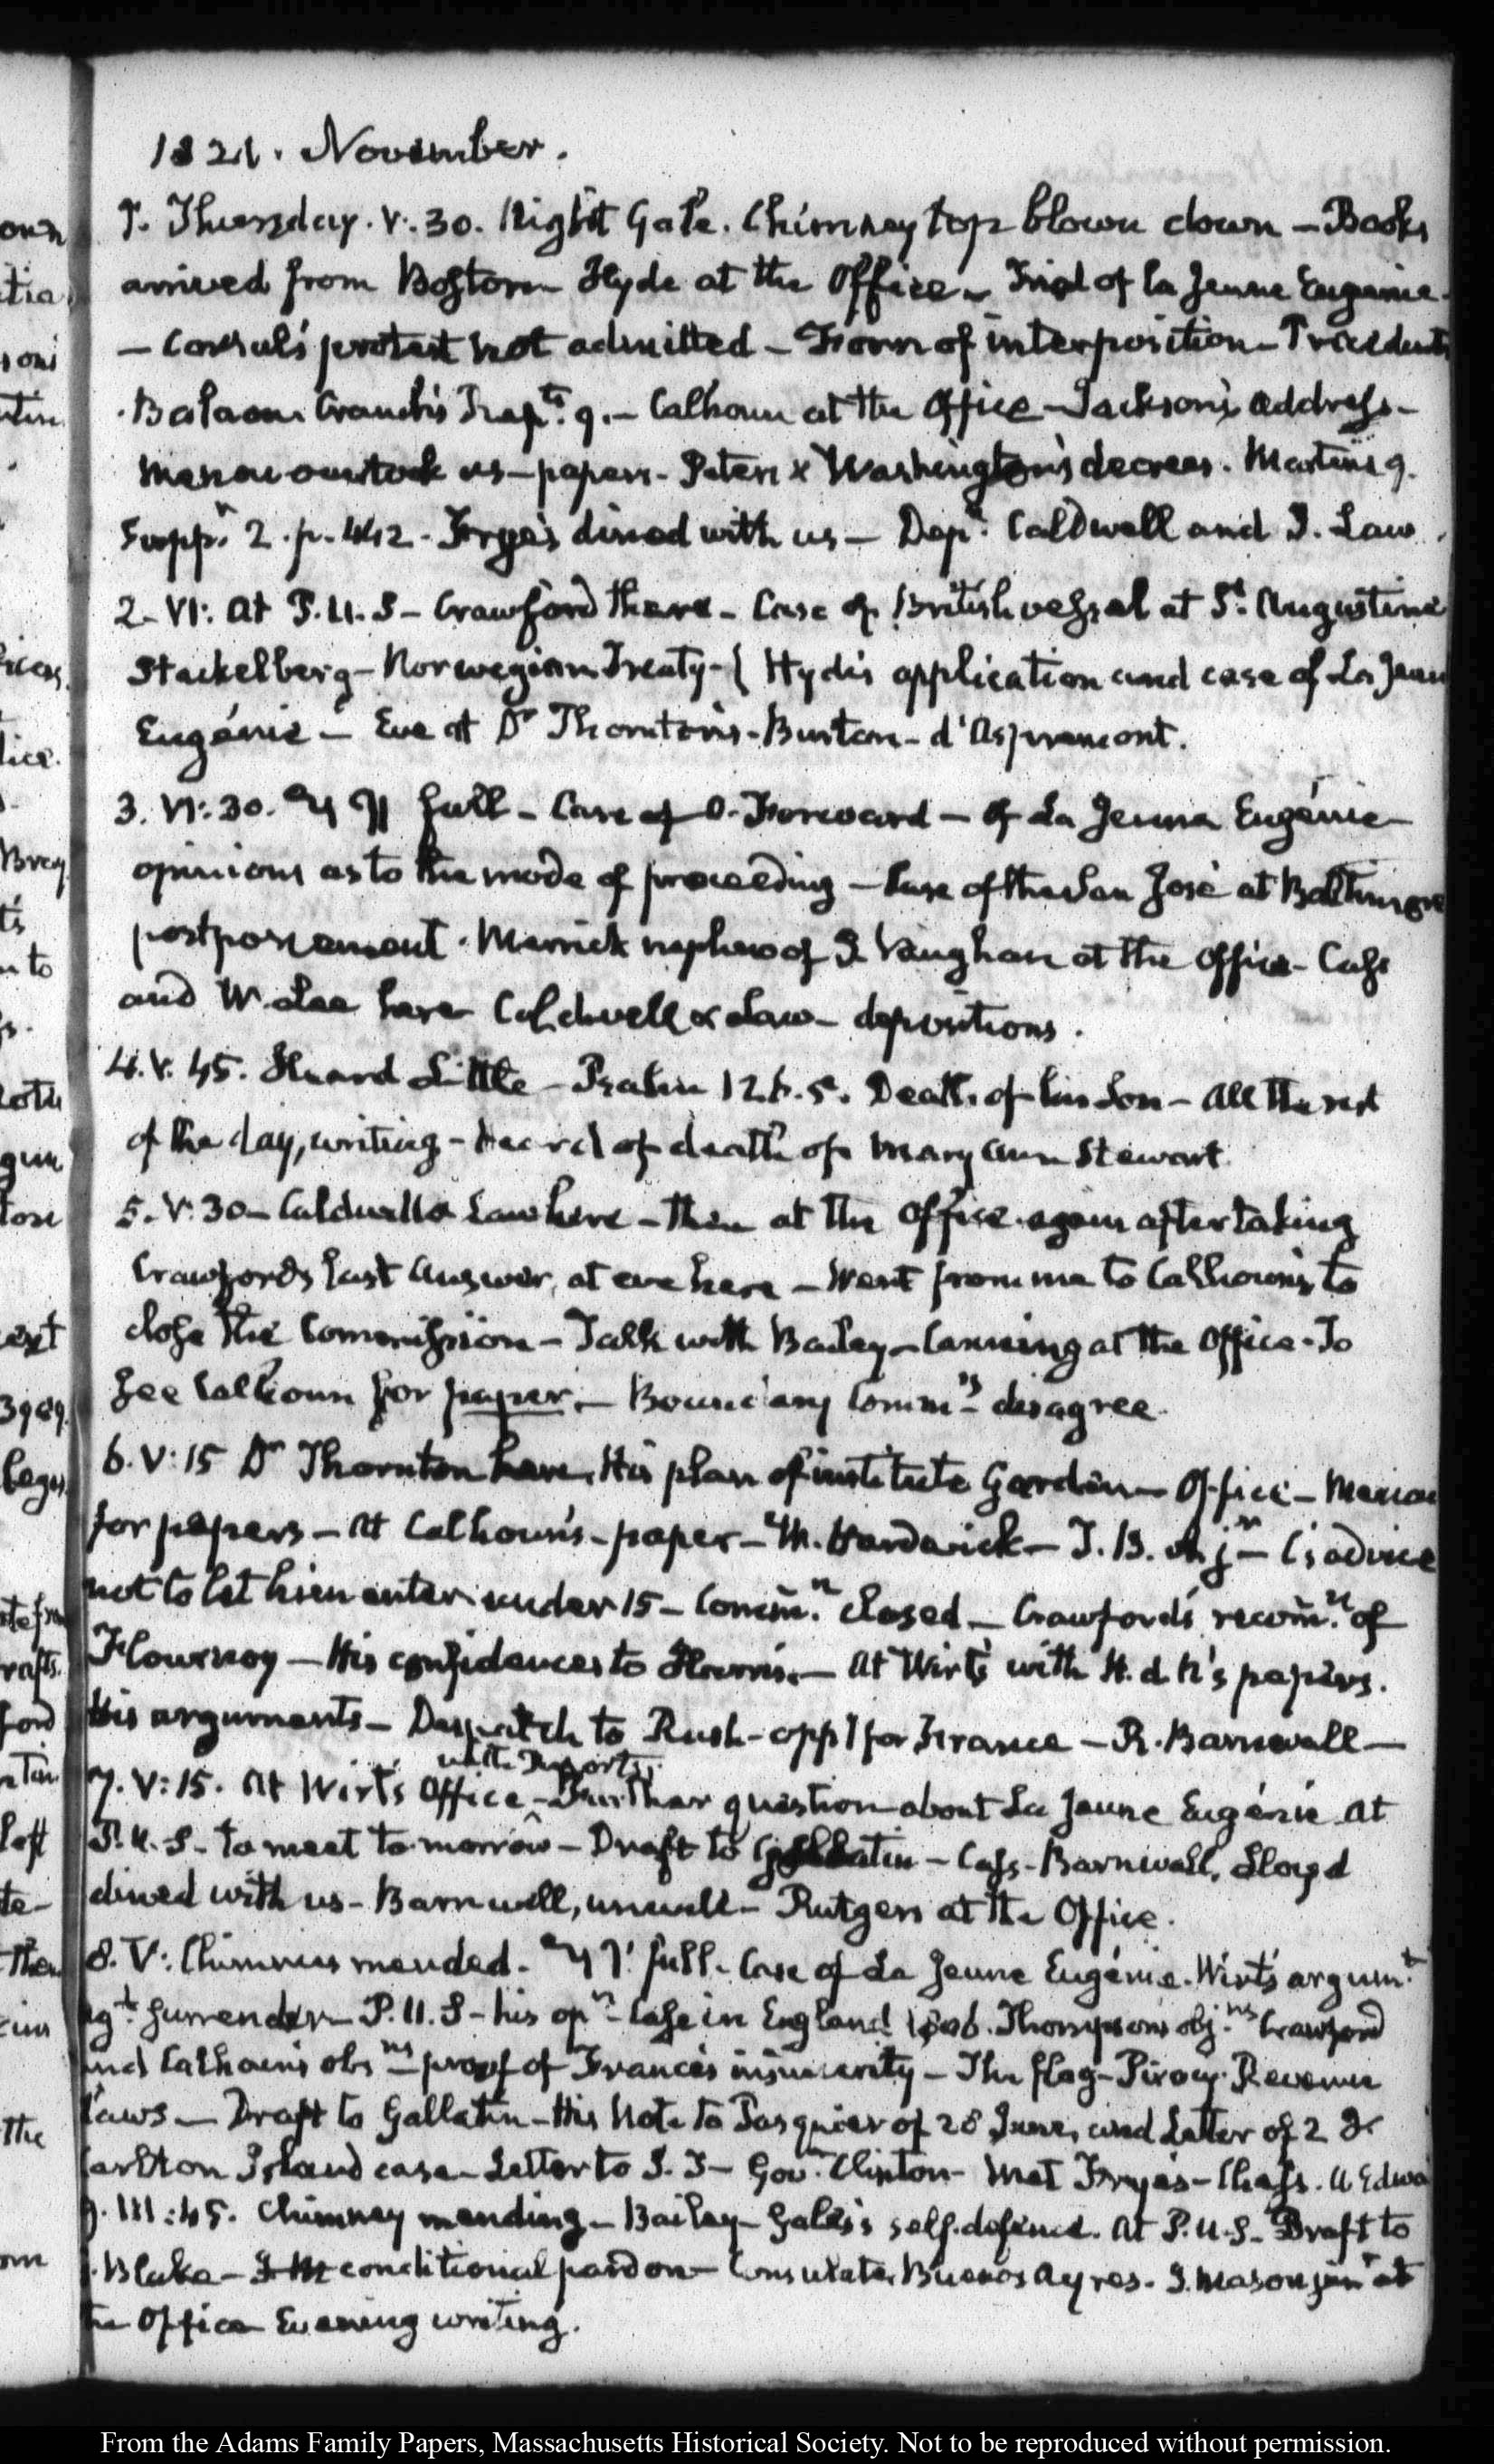 1821. November.
1. Thursday. V:30. Night Gale. Chimney top blown down – Books
arrived from Boston – Hyde at the Office – Trial of la Jeune Eugenie
– Consul's protest not admitted – Form of interposition – Precedents
Calhoun at the Office – Jackson's address –
overtook us – papers – Washington's decrees. Martens 9.
Supp.t 2. p. 442 – Frye's dined with us – Dep.s Caldwell and J. Law
2. VI: At P.U.S – Crawford there – Case of British vessel at S.t Augustine
Stackelberg – Norwegian Treaty – Hyde's application and case of La Jeune
Eugénie – Eve at D.r Thornton's – Burton – d'Aspremont.
3. VI:30. full – Case of of La Jeune Eugénie
opinions as to the mode of proceeding – Case of the San José at Baltimore
postponement. Merrick nephew of J. Vaughan at the Office – Cass
and W. Lee here Caldwell & Law – depositions.
4. V. 45. Heard Little – Psalm 126.5. Death of his Son – All the rest
of the day, writing – heard of death of Mary Ann Stewart.
5. V:30 – Caldwell & Law here – then at the Office again after taking
Crawford's last answer, at eve here – Went from me to Calhoun's to
close the Commission – Talk with Bailey – Canning at the Office – To
see Calhoun for paper. – Boundary Comm.rs disagree.
6. V:15 D.r Thornton here. His plan of institute Garden – Office –
for papers – At Calhoun's – paper – M. Hardwick – C's advice
not to let him enter under 15 – Comm.n closed – Crawford's recom.n of
Flournoy – His confidences to – At Wirt's with H. d N's papers.
His arguments – Despatch to Rush – for France – R. Barnwall –
with Reports,
7. V:15. At Wirt's Office – Further question about La Jeune Eugénie At
P.U.S – to meet to-morrow – Draft to Gallatin – Cass – Barnwall, Lloyd
dined with us – Barnwell, unwell – Rutgers at the Office.
8. V: Chimnies mended. full – Case of La Jeune Eugénie. Wirt's argum.t
ag.t surrender – P.U.S – his op.n – Case in England 1806. Thompson's obj.ns Crawford
and Calhoun's obs.ns – proof of France's insincerity – The flag – Piracy. Revenue
laws – Draft to Gallatin – His Note to Pasquier of 28 June, and Letter of 2 d.
Carlton Island case – Letter to – Gov.r Clinton – Met Fryes – Chess.
9. III:45. Chimney mending – Bailey – Gales's self-defence. At P.U.S – Draft to
Blake – conditional pardon – Consulate, Buenos Ayres. J. Mason jun.r at
the Office – Evening writing.
From the Adams Family Papers, Massachusetts Historical Society. Not to be reproduced without permission.